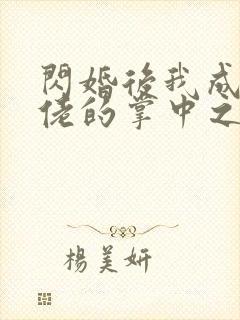 閃婚後我成
佬的掌中之
楊美妍